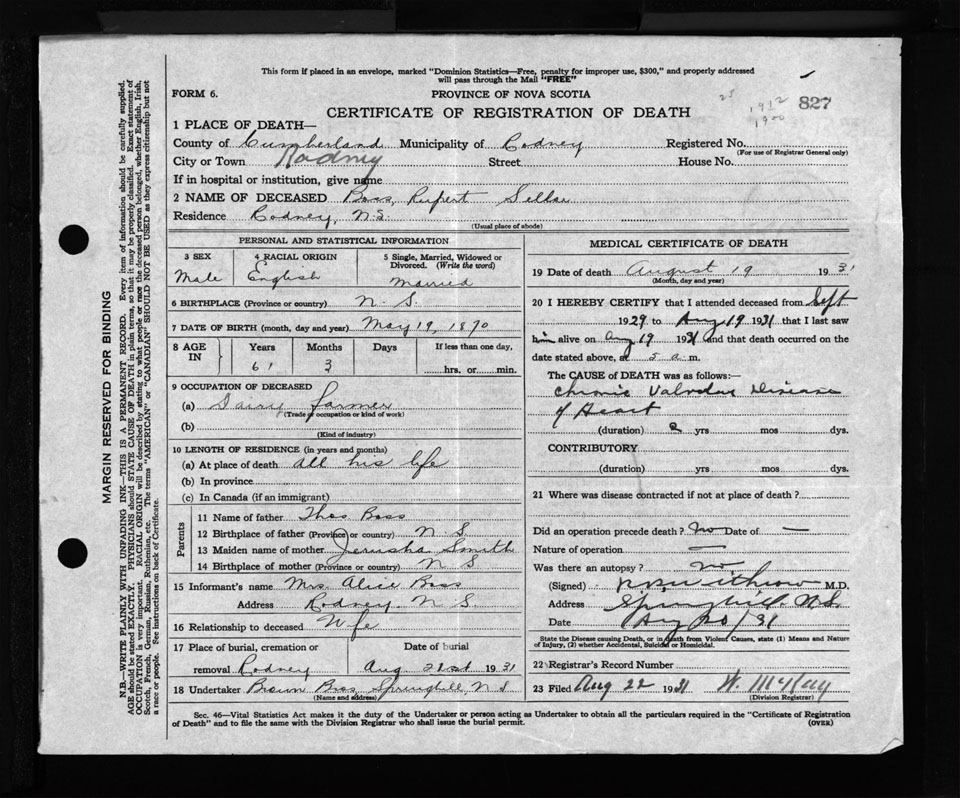 This form if placed in an envelope, marked "Dominion Statistics—Free, penalty for improper use, $300," and properly addressed
will pass through the Mail "FREE"
FORM 6.
PROVINCE OF NOVA SCOTIA
25 1912 827
1900
CERTIFICATE OF REGISTRATION OF DEATH
1 PLACE OF DEATH—
County of Cumberland Municipality of Rodney Registered No.
(For use of Registrar General only)
City or Town Rodney Street House No.
If in hospital or institution, give name
2 NAME OF DECEASED Boss, Rupert
Residence Rodney, N.S.
(Usual place of abode)
PERSONAL AND STATISTICAL INFORMATION
3 SEX 4 RACIAL ORIGIN 5 Single, Married, Widowed or
Divorced. (Write the word)
Male English Married
6 BIRTHPLACE (Province or country) N. S.
7 DATE OF BIRTH (month, day and year) May 19, 1870
8 AGE IN Years Months Days If less than one day,
61 3 hrs. or min.
9 OCCUPATION OF DECEASED
(a) Dairy farmer
(Trade or occupation or kind of work)
(b)
(Kind of industry)
10 LENGTH OF RESIDENCE (in years and months)
(a) At place of death all his life
(b) In province
(c) In Canada (if an immigrant)
Parents
11 Name of father Thos Boss
12 Birthplace of father (Province or country) N S
13 Maiden name of mother Jerusha Smith
14 Birthplace of mother (Province or country) N S
15 Informant's name Mrs. Alice Boss
Address Rodney N S
16 Relationship to deceased Wife
17 Place of burial, cremation or Date of burial
removal Rodney Aug 21st 1931
18 Undertaker Brown Bros, Springhill, N S
(Name and address)
MEDICAL CERTIFICATE OF DEATH
19 Date of death August 19 1931
(Month, day and year)
20 I HEREBY CERTIFY that I attended deceased from Sept
1929 to Aug 19 1931 that I last saw
him alive on Aug 19 1931 and that death occurred on the
date stated above, at 5 a m.
The CAUSE of DEATH was as follows:—
Chronic Valvular Disease
of Heart
(duration) 2 yrs mos dys.
CONTRIBUTORY
(duration) yrs. mos. dys.
21 Where was disease contracted if not at place of death?
Did an operation precede death? No Date of —
Nature of operation —
Was there an autopsy? No
(Signed) M.D.
Address Springhill, N.S.
Date Aug 20/31
State the Disease causing Death, or in death from Violent Causes, state (1) Means and Nature
of Injury, (2) whether Accidental, Suicidal or Homicidal.
22 Registrar's Record Number
23 Filed Aug 22 1931 W. McKay
(Division Registrar)
Sec. 46—Vital Statistics Act makes it the duty of the Undertaker or person acting as Undertaker to obtain all the particulars required in the "Certificate of Registration
of Death" and to file the same with the Division Registrar who shall issue the burial permit. (OVER)
MARGIN RESERVED FOR BINDING
N.B.—WRITE PLAINLY WITH UNFADING INK—THIS IS A PERMANENT RECORD. Every item of information should be carefully supplied.
AGE should be stated EXACTLY. PHYSICIANS should STATE CAUSE OF DEATH in plain terms, so that it may be properly classified. Exact statement of
OCCUPATION is very important. RACIAL ORIGIN will be described by stating to what people or race the deceased person belonged, whether English, Irish,
Scotch, French, German, Russian, Ruthenian, etc. The terms "AMERICAN" or "CANADIAN" SHOULD NOT BE USED as they express citizenship but not
a race or people. See instructions on back of Certificate.